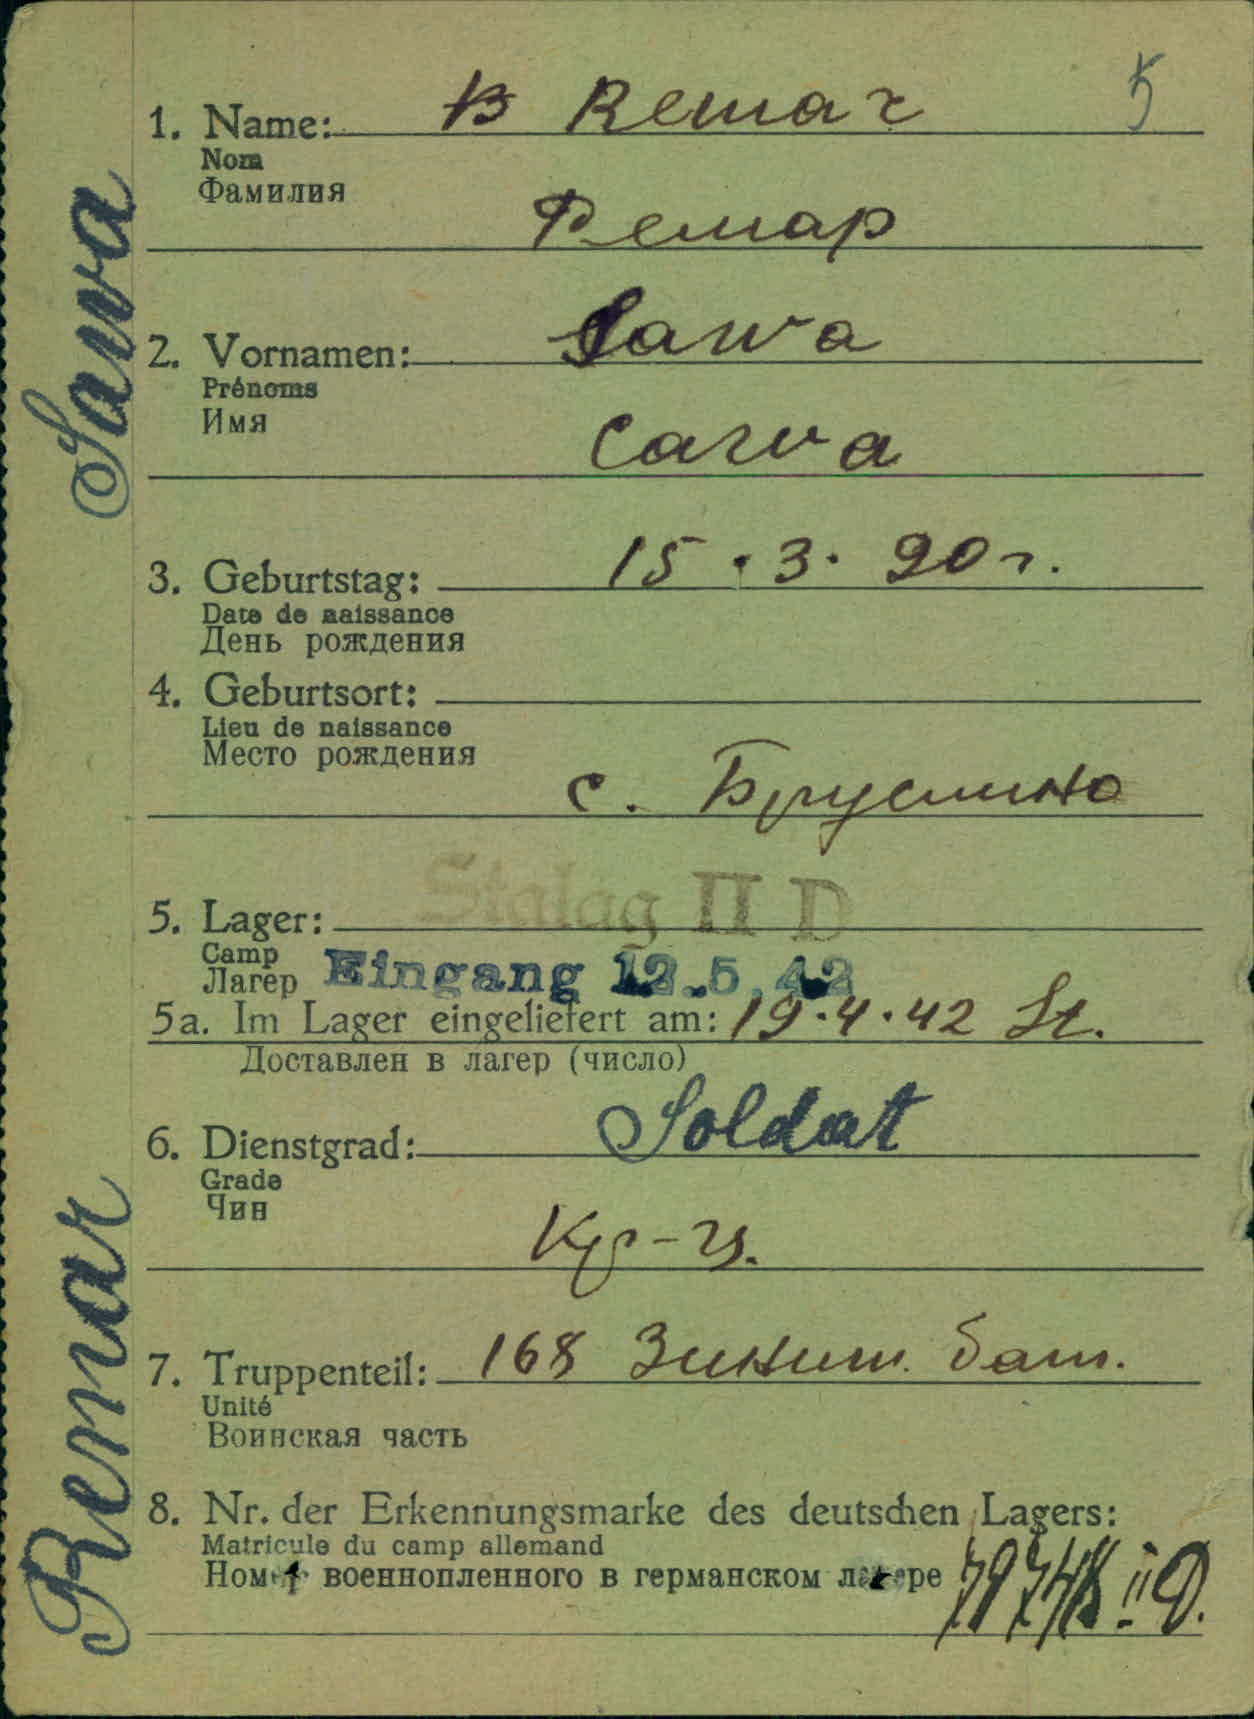 5
1. Name: B Remar
Nom
Фамилия
Ремар
2. Vornamen: Sawa
Prénoms
Имя
Савва
3. Geburtstag: 15.3.20 г.
Date de naissance
День рождения
4. Geburtsort:
Lieu de naissance
Место рождения
с.
Stalag II D
5. Lager:
Camp
Лагер Eingang 12.5.42
5a. Im Lager eingeliefert am: 19.4.42 St.
Доставлен в лагер (число)
6. Dienstgrad: Soldat
Grade
Чин
Кр-ц.
7. Truppenteil: 168 Зенит. бат.
Unité
Воинская часть
8. Nr. der Erkennungsmarke des deutschen Lagers:
Matricule du camp allemand
Номер военнопленного в германском лагере II D.
Remar Sawa